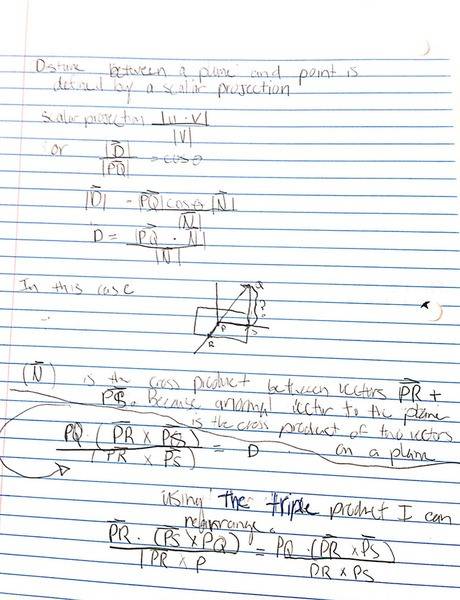 Distane between a plane and point is
defined by a scalar projection
scalar projection |u · v| / |v|
or |D| / |PQ| = cosθ
|D| = |PQ| cosθ |N| / |N|
D = |PQ · N| / |N|
In this case
Q
P
S
R
(N) is the cross product between vectors PR +
PS. Because a normal vector to the plane
is the cross product of two vectors
on a plane
PQ · (PR × PS) / |PR × PS| = D
Using the triple product I can
rearrange
PR · (PS × PQ) / |PR × P = PQ · (PR × PS) / PR × PS